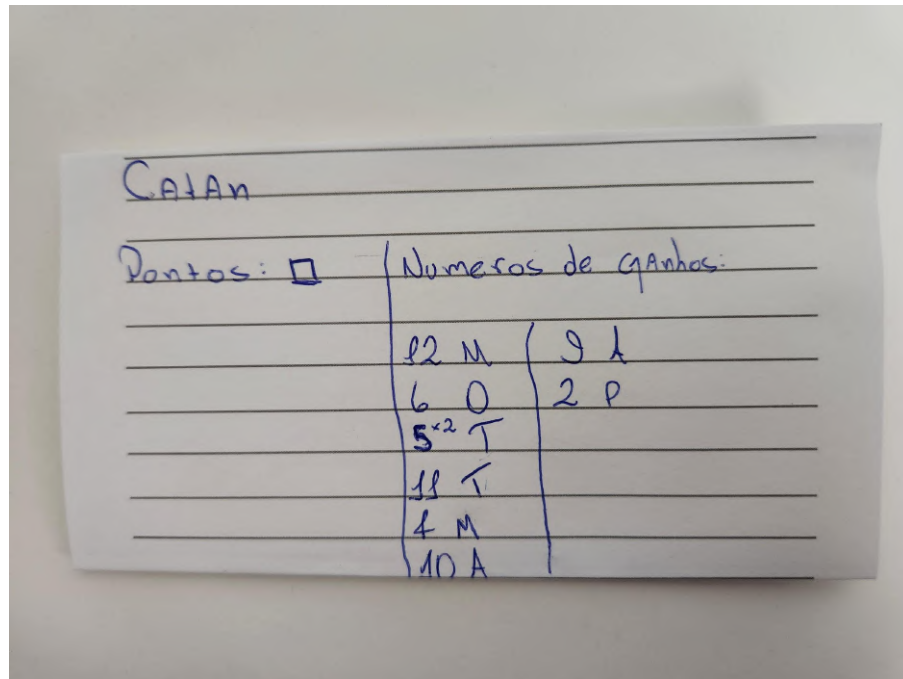 Catan
Pontos: | Numeros de ganhos:
12 M | 9 A
6 O | 2 P
5×2 T
11 T
4 M
10 A